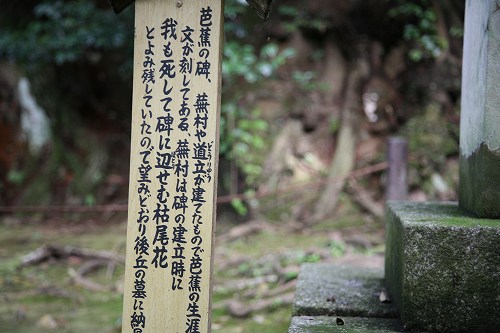 芭蕉の碑、蕪村や道立が建てたもので芭蕉の生涯
文が刻してある、蕪村は碑の建立時に
我も死して碑に辺せむ枯尾花
とよみ残していたので望みどおり後丘の墓に納